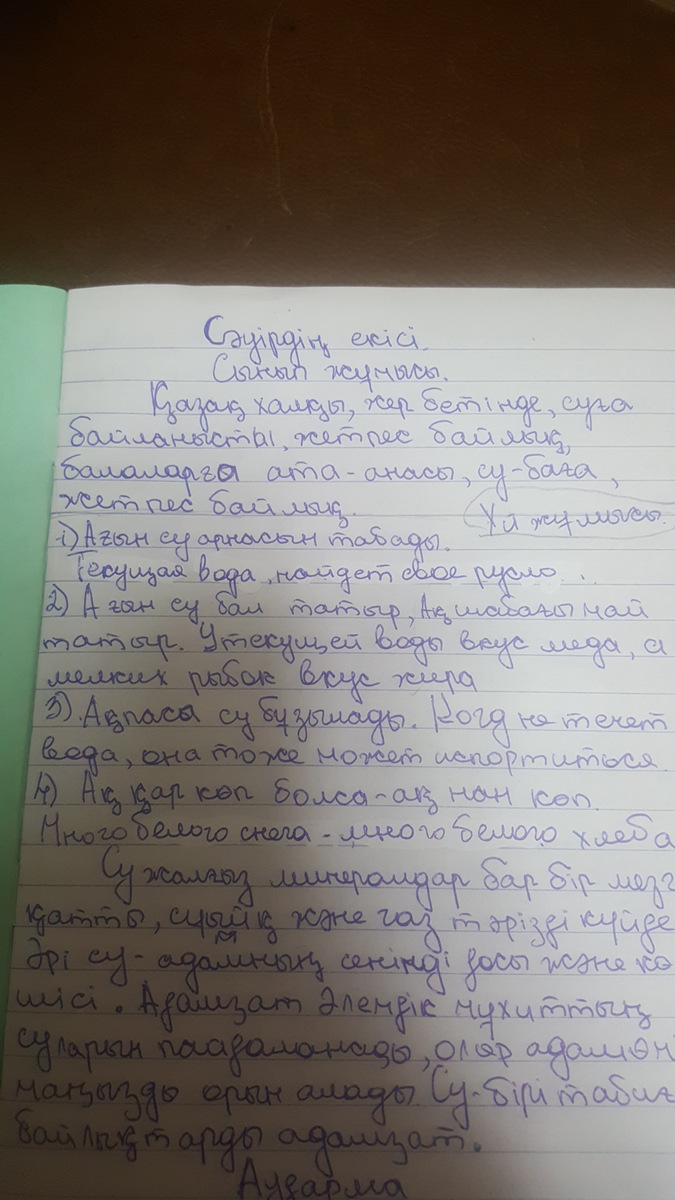 Сәуірдің екісі.
Сынып жұмысы.
Қазақ халқы, жер бетінде, суға
байланысты, жетпес байлық,
балаларға ата-анасы, су-баға,
жетпес байлық.
Үй жұмысы.
1) Ағын су арнасын табады.
Текущая вода, найдет свое русло...
2) Ағын су бал татыр, Ақ шабағы май
татыр. У текущей воды вкус меда, а
мелких рыбок вкус жира
3). Ақпаса су бұзылады. Когд не течет
вода, она тоже может испортиться
4) Ақ қар көп болса-ақ нан көп.
Много белого снега - много белого хлеба
Су жалғыз минералдар бар бір мезг
қатты, сұйық және газ тәрізді күйде
Әрі су - адамның сенімді досы және кө
шісі. Адамзат Әлемдік мұхиттың
суларын пайдаланады, олар адам өм
маңызды орын алады. Су-бірі табиғ
байлықтарды адамзат.
Аударма